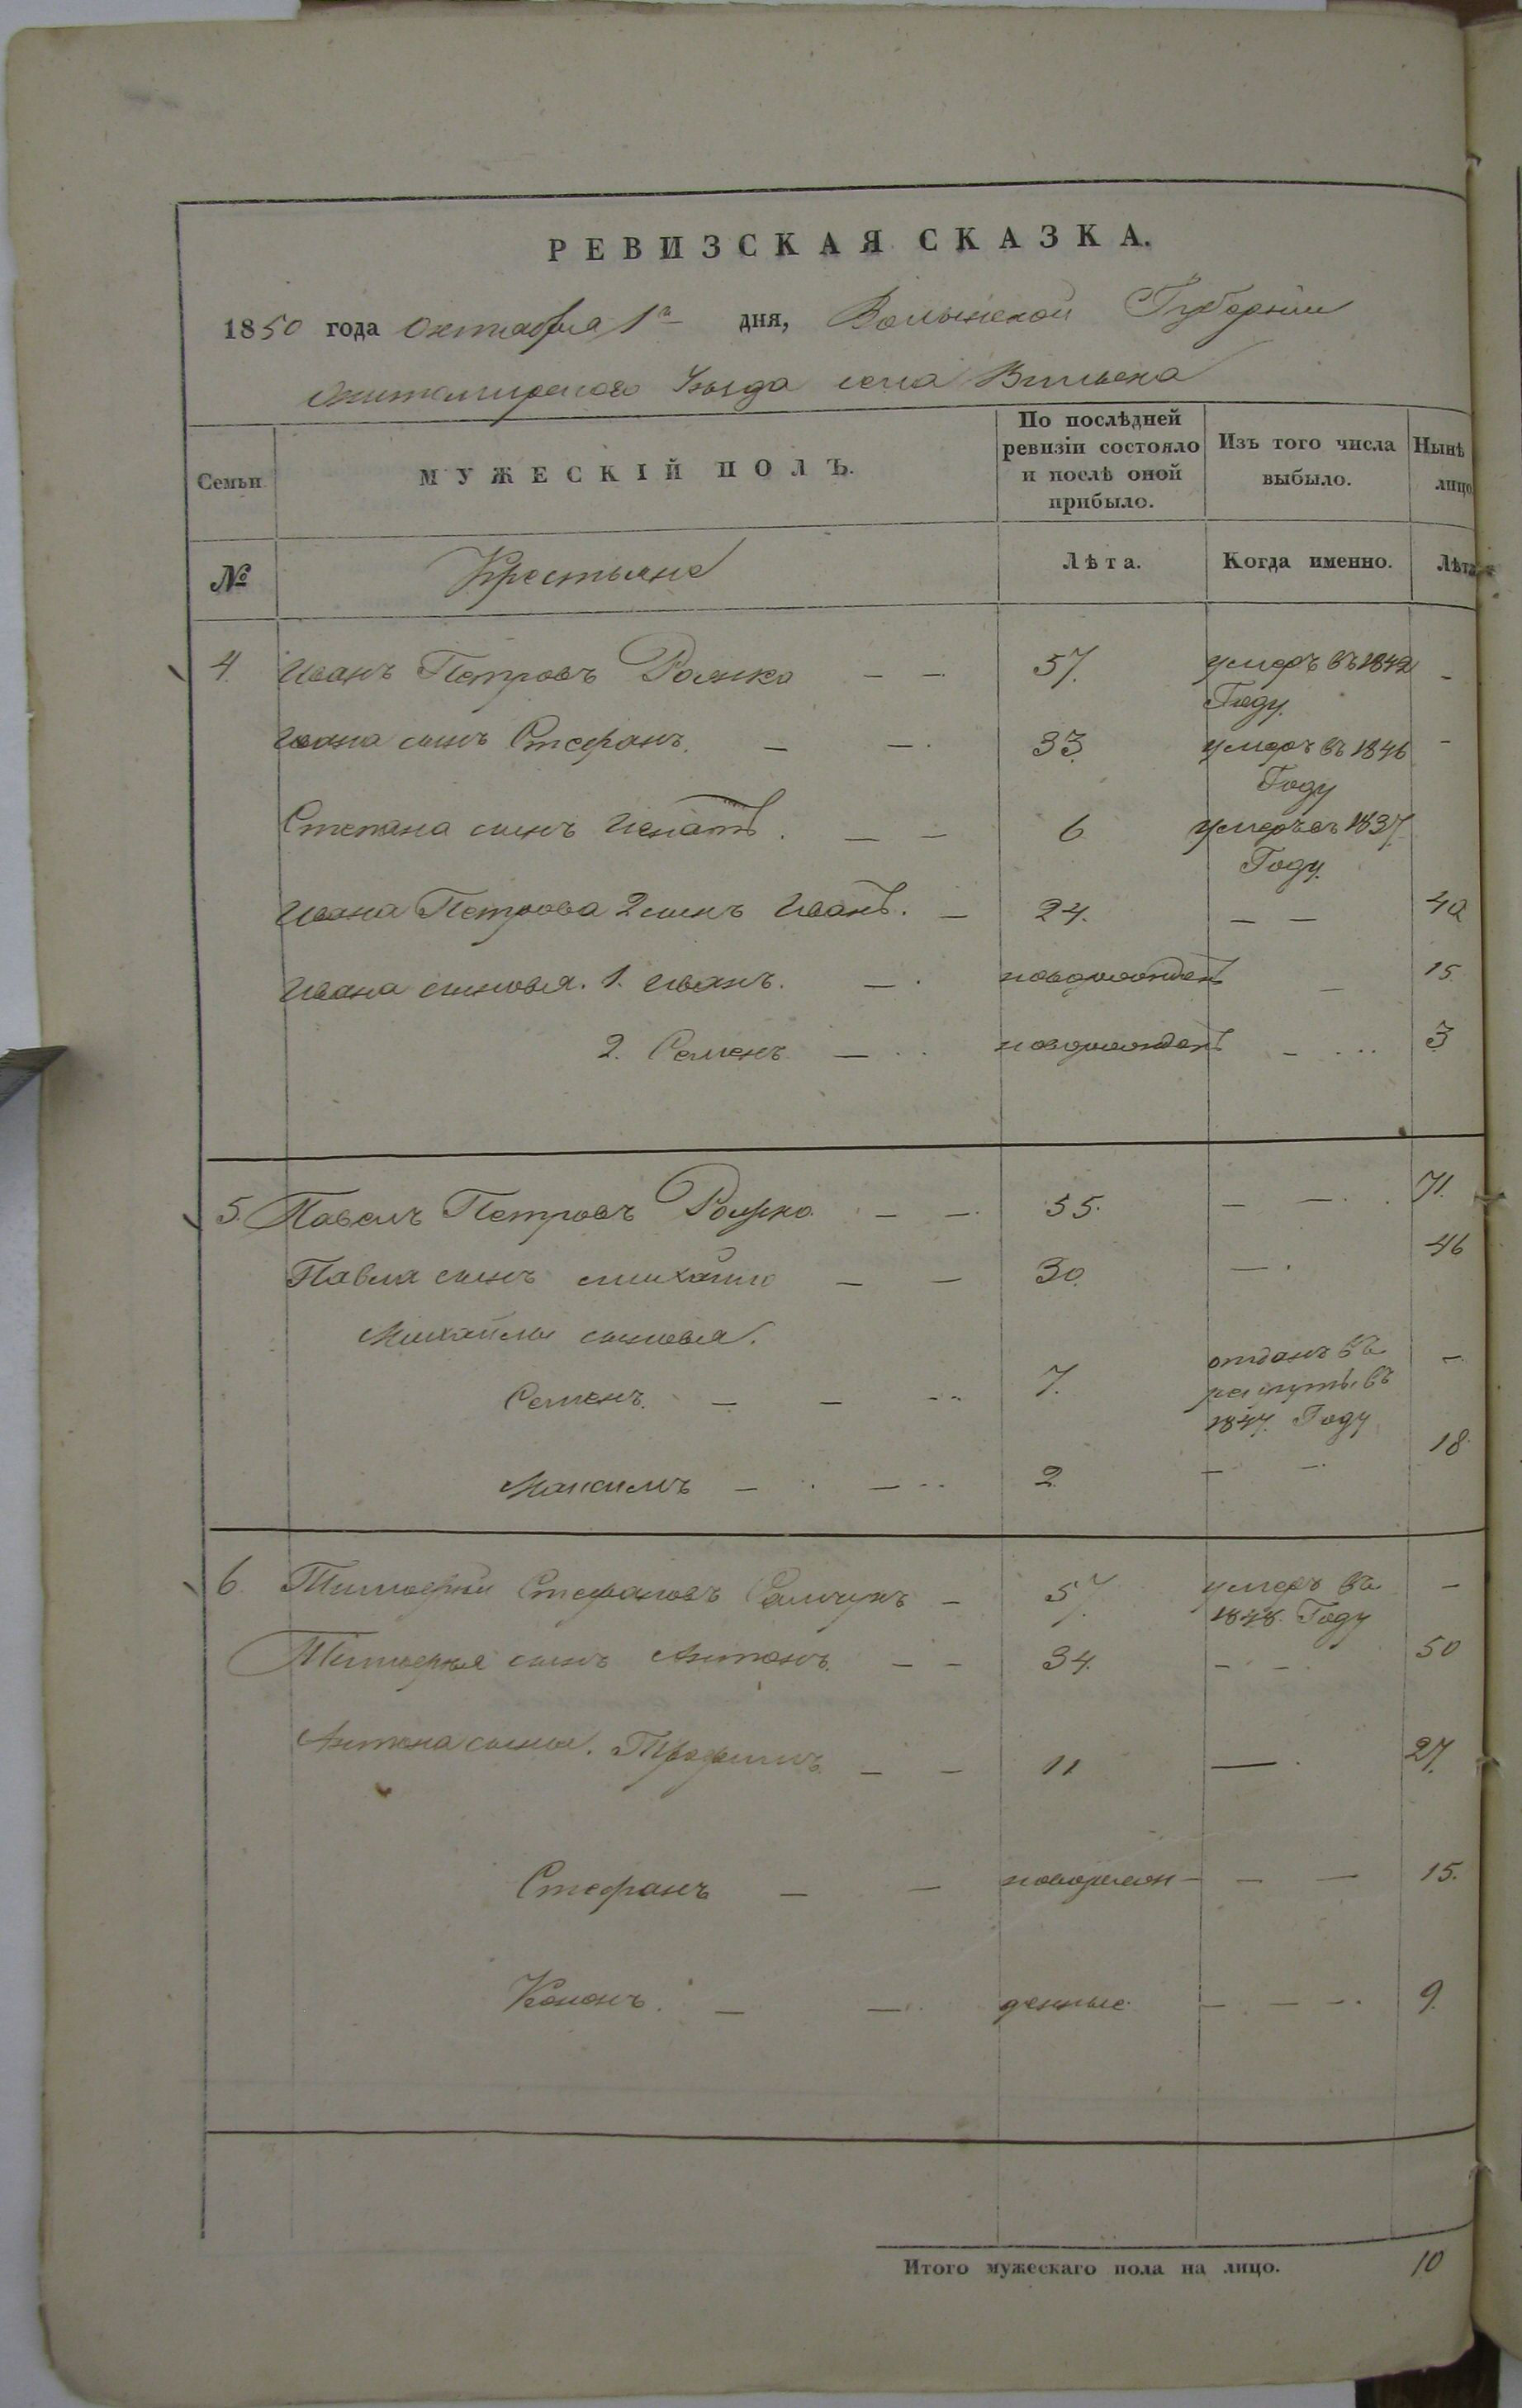 РЕВИЗСКАЯ СКАЗКА.
1850 года Октября 1го дня, Волынской Губерніи
Житомирского Уѣзда села Вильска
Семьи
МУЖЕСКІЙ ПОЛЪ.
По послѣдней ревизіи состояло и послѣ оной прибыло.
Изъ того числа выбыло.
Нынѣ лицо
№ Крестьяне Лѣта. Когда именно. Лѣта
4. Иванъ Петровъ 57. умеръ въ 1842 –
Году.
Ивана сынъ Стефанъ. 33. умеръ въ 1846 –
Году
Степана сынъ Игнатъ. 6 умеръ въ 1837
Году.
Ивана Петрова 2 сынъ Иванъ. 24. – – 40
Ивана сыновья. 1. Иванъ. новорожденъ – 15
2. Семенъ новорожденъ – 3
5. Павелъ Петровъ 55. – – 71.
Павла сынъ Михайло 30. – 46
Михайлы сыновья.
Семенъ. 7. отданъ въ –
рекруты въ
1847. Году
Максимъ 2. – – 18.
6. Тимофей Стефановъ 57. умеръ въ –
1848. Году
Тимофея сынъ Антонъ. 34. – – 50
Антона сынья. Трофимъ 11 – 27.
Стефанъ новорож– – – 15.
Кононъ. денные – – – 9.
Итого мужескаго пола на лицо. 10